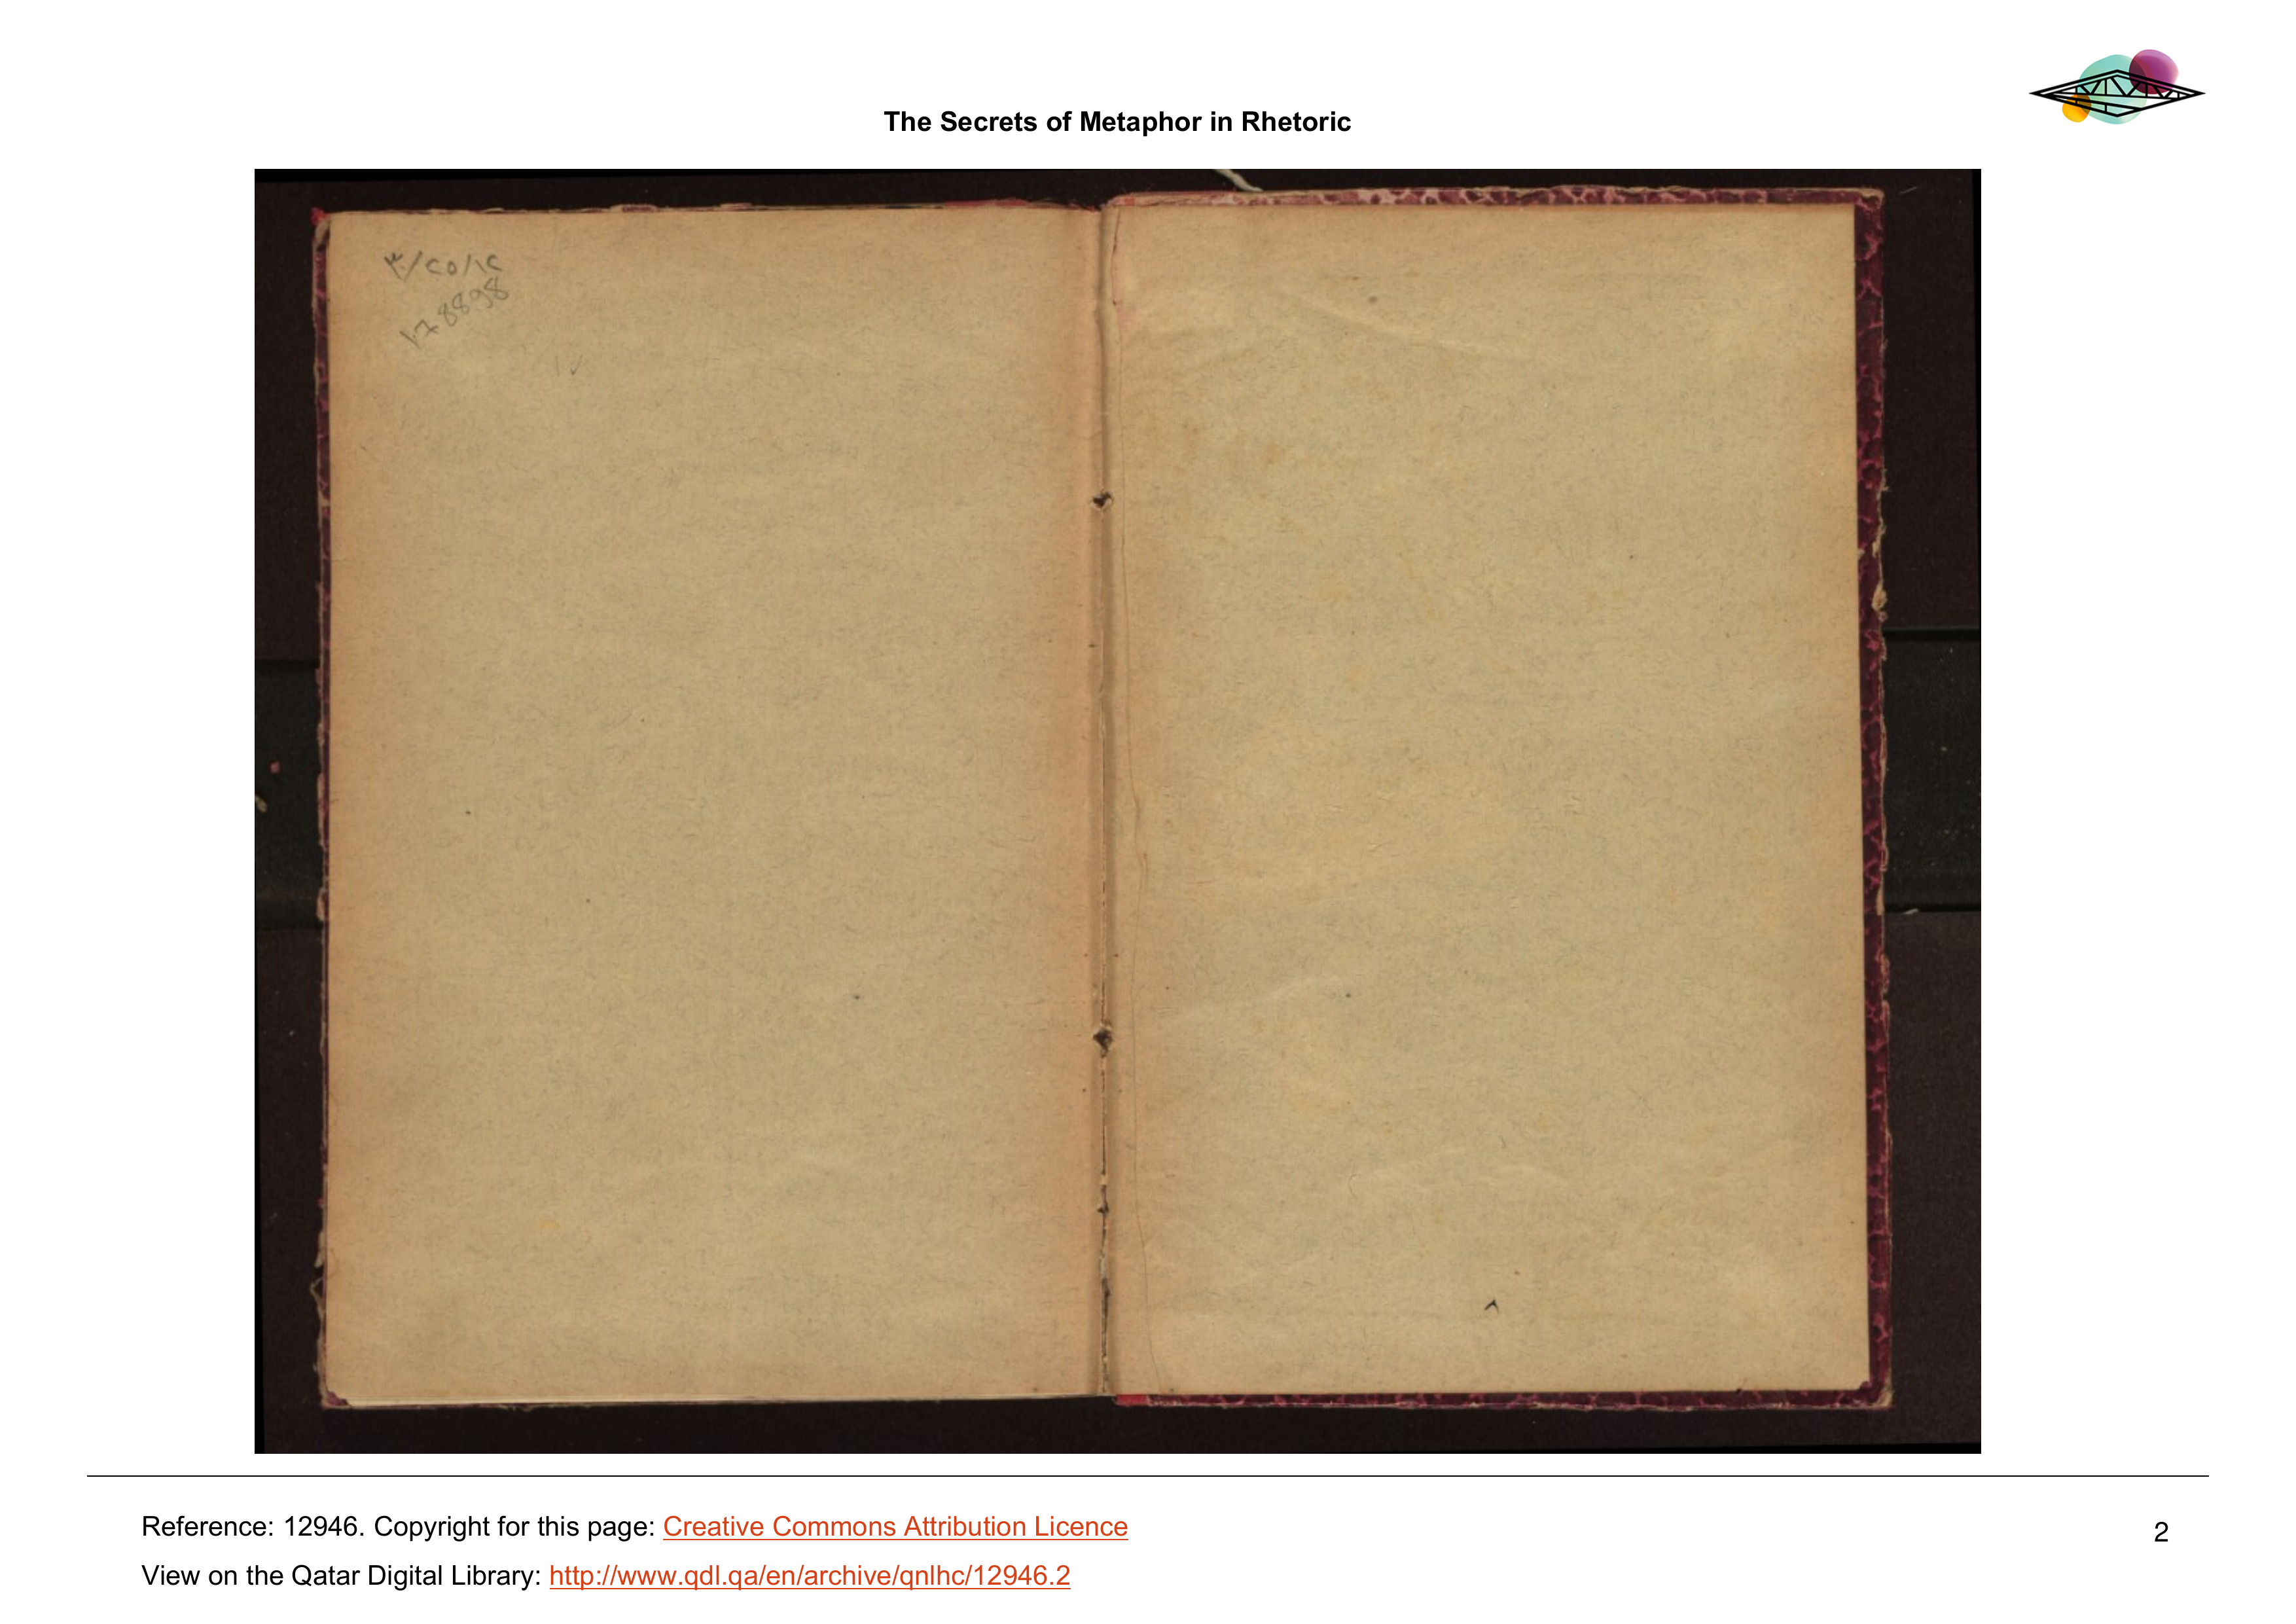 The Secrets of Metaphor in Rhetoric
Reference: 12946. Copyright for this page: Creative Commons Attribution Licence
2
View on the Qatar Digital Library: http://www.qdl.qa/en/archive/qnlhc/12946.2